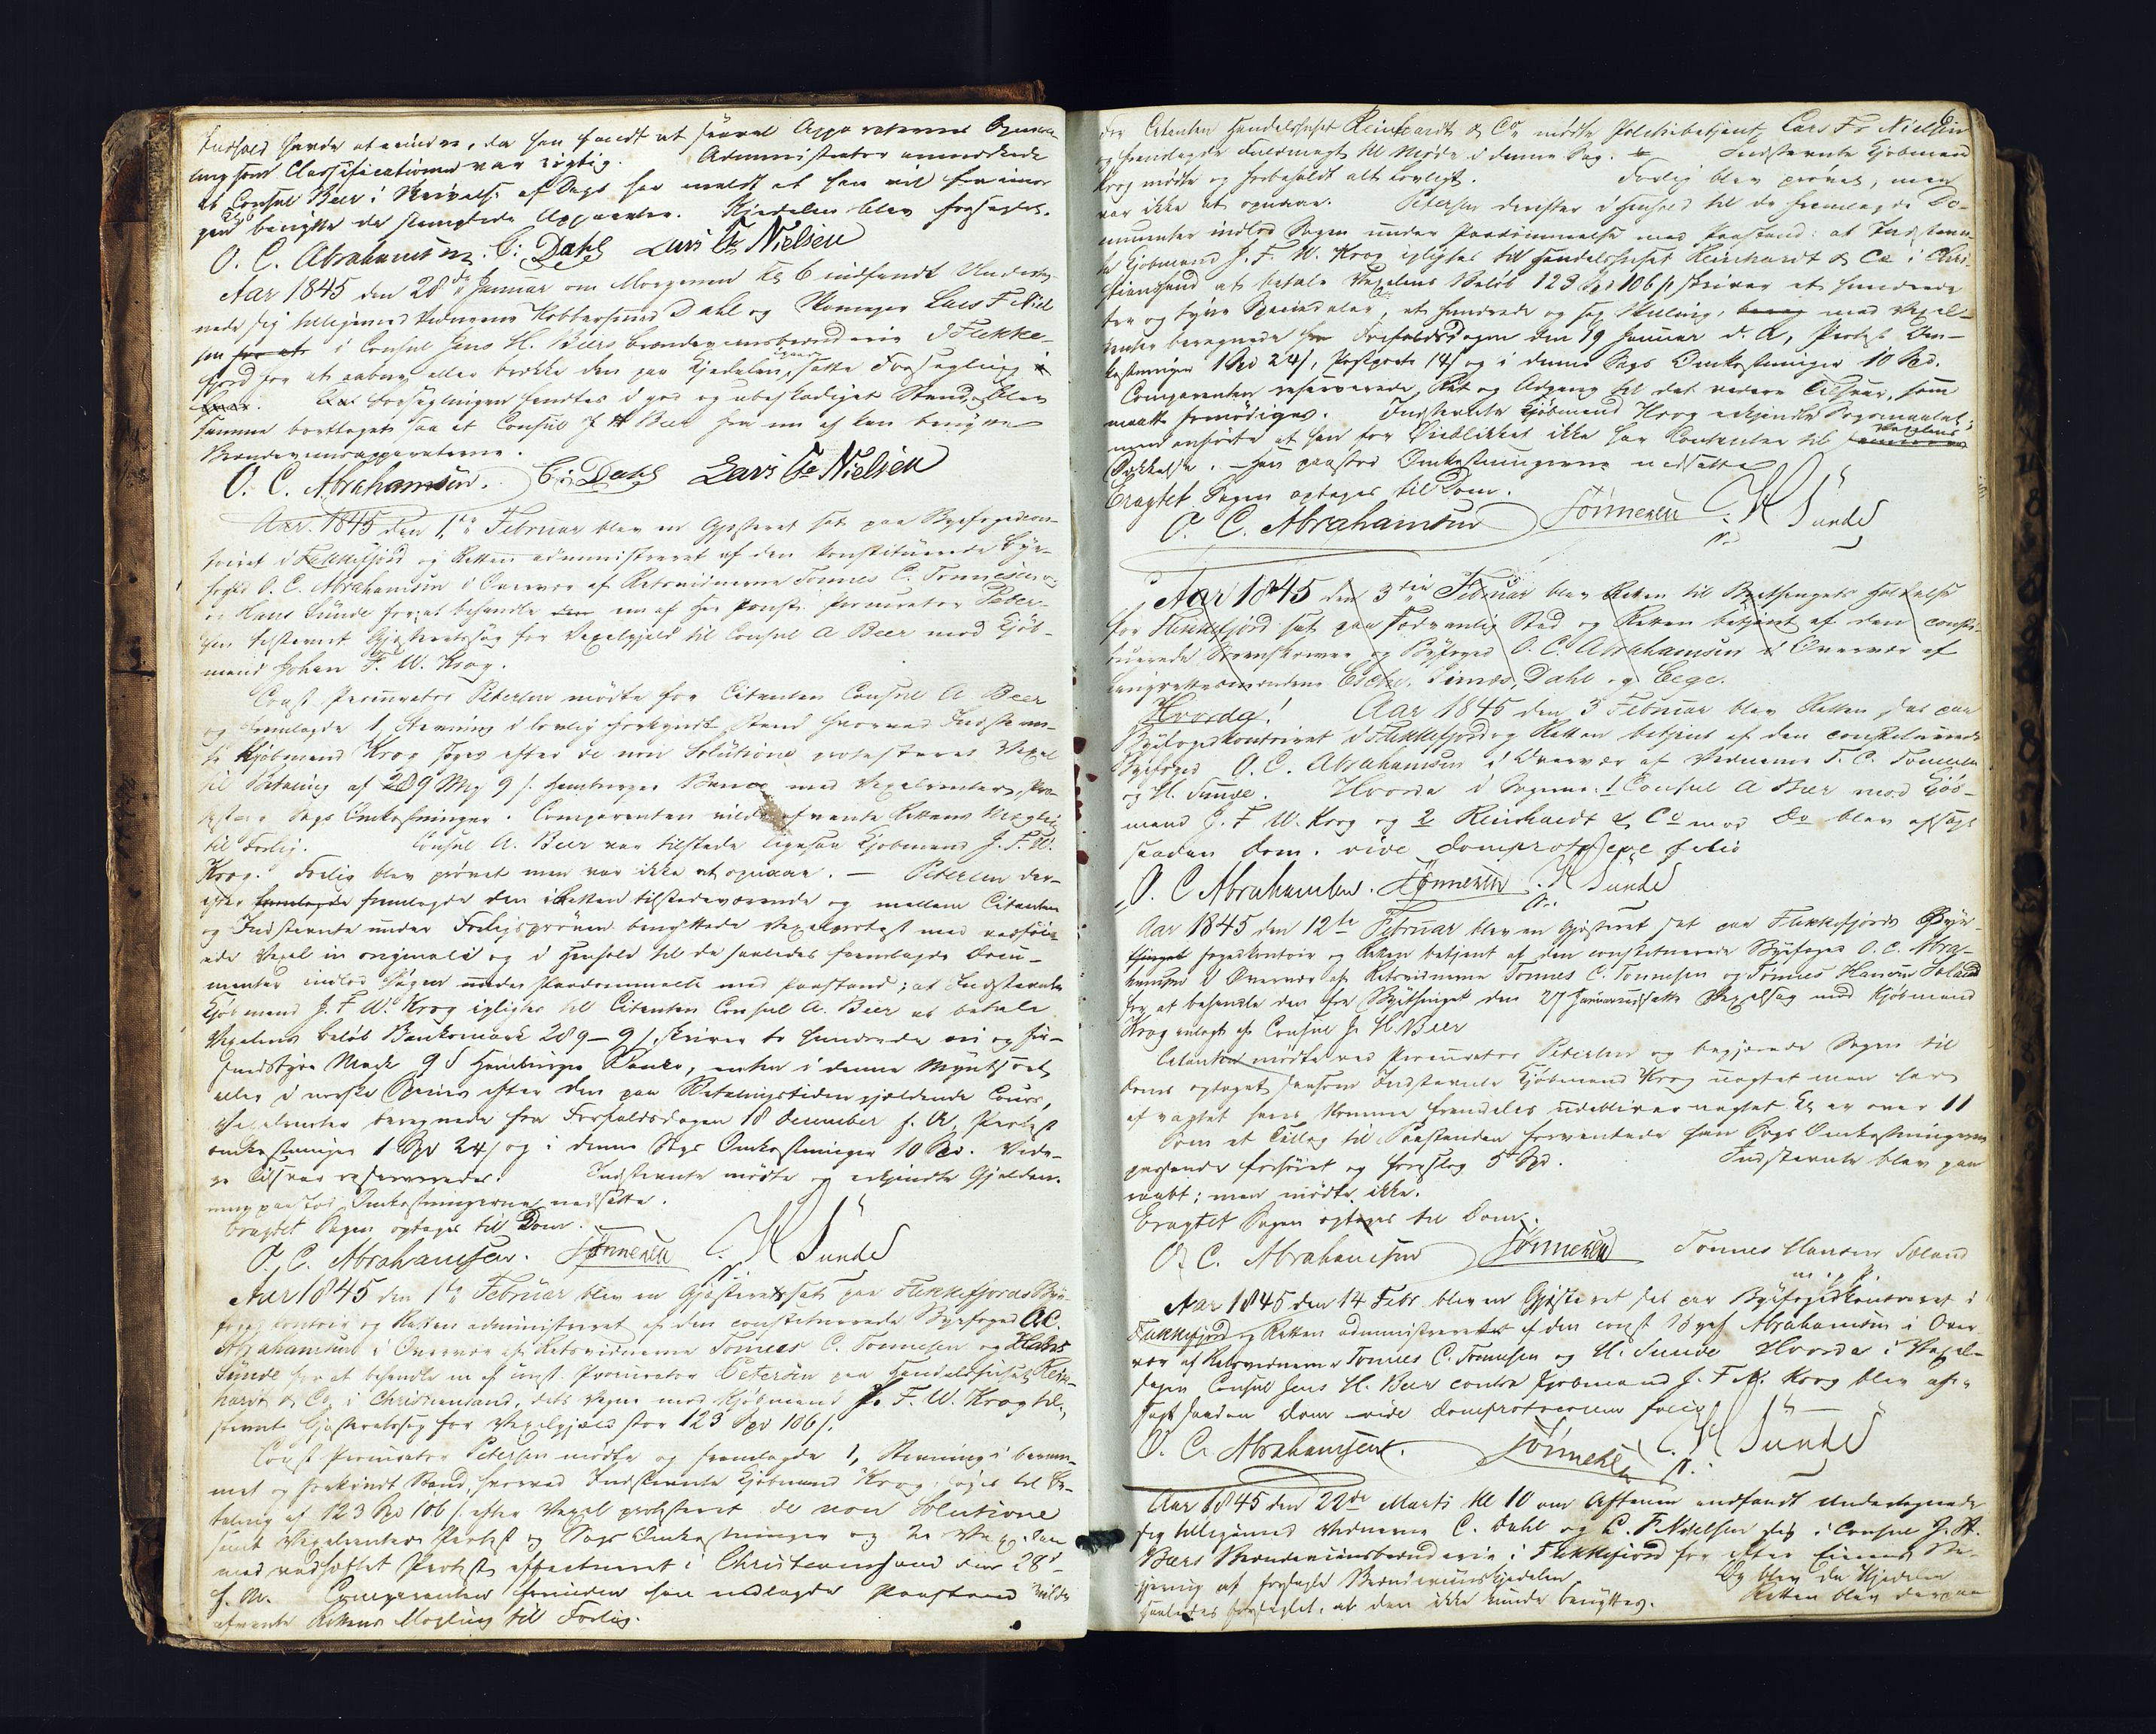 Indhold havde at erindre, da han fandt at saavel Apparaternes Opmaa-
ling som Classificationen var rigtig. Administrator anmærkede
at Consul Beer i Skrivelse af Dags har meldt at han vil fra imor-
gen benytte de stemplede Apparater. Kjedelen blev forseglet.
O. C. Abrahamsen. C: Dahl Lars Fr Nielsen
Aar 1845 den 28de Januar om Morgenen Kl 6 indfandt Undertegn-
nede sig tilligemed Vidnerne Kobbersmed Dahl og Lars F Niel-
sen for at i Consul Jens H. Beers Brændeviinsbrænderie i Flekke-
fjord for at aabne eller brække den paa Kjedelen satte Forsegling
Forseglingen fandtes i god og ubeskadiget Stand, og blev
samme borttaget saa at Consul J H Beer fra nu af kan benytte
Brændeviinsapparaterne.
O. C. Abrahamsen. C: Dahl Lars Fr Nielsen
Aar 1845 den 1te Februar blev en Gjesteret sat paa Byefogedcon-
toiret i Flekkefjord og Retten administreret af den constituerede Bye-
foged O. C. Abrahamsen i Overvær af Retsvidnerne Tønnes C. Tønnesen
og Hans Sunde for at behandle en af Hr const. Procurator Peter-
sen tilstevnt Gjesteretssag for Vexelgjeld til Consul A Beer mod Kjøb-
mand Johan F. W. Krog.
Const Procurator Petersen mødte for Citanten Consul A Beer
og fremlagde 1, Stevning i lovlig forkyndt Stand hvorved Indstevn-
te Kjøbmand Krog søges efter de non Solutione protesteret Vexel
til Betaling af 289 Mk 9 s. Hamburger Banco med Vexelrenter, Pro-
test og Sags Omkostninger. Comparenten vilde afvente Rettens Megling
til Forlig. Consul A. Beer var tilstede ligesaa Kjøbmand J. F. W.
Krog. Forlig blev prøvet men var ikke at opnaae. — Petersen der-
efter fremlagde den i Retten tilstedeværende og mellem Citanten
og Indstevnte under Forligsprøven benyttede Vexelprotest med vedføi-
ede Vexel in originali og i Henhold til de saaledes fremlagde Docu-
menter indlod Sagen under Paadømmelse med Paastand; at Indstevnte
Kjøbmand J. F W. Krog tilpligtes til Citanten Consul A. Beer at betale
Vexelens beløb Bankomark 289 — 9 s, skriver to Hundrede ni og fir-
sindstyve Mark 9 s Hamburger Banco, enten i denne Myntsort
eller i norske Penge efter den paa Betalingstiden gjældende Cours,
Vexelrenter beregnede fra Forfaldsdagen 18 December f. A, Protest
omkostninger 1 Spd 24 s og i denne Sags Omkostninger 10 Spd. Vide-
re Tilsvar reserveredes. Indstevnte mødte og erkjendte Gjelden.
men paastod Omkostningerne nedsatte.
Eragtet Sagen optages til Dom.
O, C. Abrahamsen. Tønnesen H Sunde
Aar 1845 den 1te Februar blev en Gjesteret sat paa Flekkefjords Bye-
foged contoir og Retten administreret af den constituerede Byefoged O. C.
Abrahamsen i Overvær af Retsvidnerne Tønnes C. Tønnesen og Hans
Sunde for at behandle en af const. Procurator Petersen paa Handelshuset Rein-
hardt & Co i Christiansand, dets Vegne mod Kjøbmand J. F. W. Krog til-
stevnt Gjesteretssag for Vexelgjæld stor 123 Spd 106 s.
Const Procurator Petersen mødte og fremlagde 1, Stevning i beram-
met og forkyndt Stand, hvorved Indstevnte Kjøbmand Krog søges til Be-
taling af 123 Spd 106 s. efter Vexel protesteret de non Solutione
samt Vexelrenter Protest og Sags Omkostninger og
med vedhæftet Protest effectueret i Christiansand den 28d
f. M. Comparenten forinden han nedlagde Paastand vilde
afvente Rettens Megling til Forlig.
For Citanten Handelshuset Reinhardt & Co mødte Politibetjent Lars Fr Nielsen
og fremlagde Fuldmagt til Møde i denne Sag. Indstevnte Kjøbmand
Krog mødte og forbeholdt alt Lovligt. Forlig blev prøvet, men
var ikke at opnaae. Petersen derefter i Henhold til de fremlagde Do-
cumenter indlod Sagen under Paadømmelse med Paastand: at Indstevn-
te Kjøbmand J. F. W. Krog tilpligtes til Handelshuset Reinhardt & Co i Chri-
stiansand at betale Vexelens Beløb 123 Spd 106 s skriver et hundrede
tre og tyve Speciedaler, et hundrede og sex Skilling, med Vexel-
renter beregnede fra Forfaldsdagen den 19 Januar d. A, Protest Om-
kostninger 1 Spd 24 s, Postporto 14 s og i denne Sags Omkostninger 10 Spd.
Comparenten reserverede Ret og Adgang til det videre Tilsvar, som
maatte fornødiges. Indstevnte Kjøbmand Krog erkjendte Søgsmaalet,
men anførte at han for Øieblikket ikke har Contanter til Vexelens
Dækkelse. — Han paastod Omkostningerne nedsatte
Eragtet Sagen optages til Dom.
O. C. Abrahamsen Tønnesen H Sunde
Aar 1845 den 3die Februar blev Retten til Byethingets Holdelse
for Flekkefjord sat paa sædvanlig Sted og Retten betjent af den consti-
tuerede Sorenskriver og Byfoged O. C. Abrahamsen i Overvær af
Laugrettesmændene Esche. Simes, Dahl og Eege.
Hvorda! Aar 1845 den 3 Februar blev Retten sat paa
Byefogedkontoiret i Flekkefjord og Retten betjent af den constituerede
Byefoged O. C. Abrahamsen i Overvær af Vidnerne T. C. Tønnesen
og H. Sunde. Hvorda i Sagerne: 1 Consul A Beer mod Kjøb-
mand J. F W. Krog og 2 Reinhardt & Co mod Do blev afsagt
saadan Dom. vide Domprot folio
O. C Abrahamsen. Tønnesen H Sunde
Aar 1845 den 12te Februar blev en Gjesteret sat paa Flekkefjords Bye-
thinget fogedkontoir og Retten betjent af den constituerede Byefoged O. C. Abra-
hamsen i Overvær af Retsvidnerne Tønnes C. Tønnesen og Tønnes Hansen Soland
for at behandle den fra Byethinget den 27 Januar udsatte Vexelsag mod Kjøbmand
Krog anlagt af Consul J. H Beer
Citanten mødte ved Procurator Petersen og begjærede Sagen til
Doms optaget dersom Indstevnte Kjøbmand Krog uagtet man har
af vagtet hans Komme fremdeles udebliver uagtet Kl er over 11
Som et Tillæg til Paastanden forventede han Sags Omkostningerne
passende forhøiet og foreslog 5 Spd. Indstevnte blev paa
raabt; men mødte ikke.
Eragtet Sagen optages til Dom.
O. C. Abrahamsen Tønnesen Tønnes Hansen Soland
m. p. P.
Aar 1845 den 14 Febr blev en Gjesteret sat paa Byefogedkontoret i
Flekkefjord og Retten administreret af den const Byef Abrahamsen i Over-
vær af Retsvidnerne Tønnes C. Tønnesen og H. Sunde Hvorda i Vexel-
sagen Consul Jens H. Beer contra Kjøbmand J. F W. Krog blev af-
sagt saadan Dom vide Domprotocollen folio
O. C. Abrahamsen. Tønnesen H Sunde
Aar 1845 den 22de Marts Kl 10 om Aftenen indfandt Undertegnede
sig tilligemed Vidnerne C. Dahl og L. F Nielsen sig i Consul J. H.
Beers Brændeviinsbrænderie i Flekkefjord for efter Be-
gjering at forsegle Brændeviinskjedelen. Og blev da Kjedelen
saaledes forseglet, at den ikke kunde benyttes. Retten blev derpaa